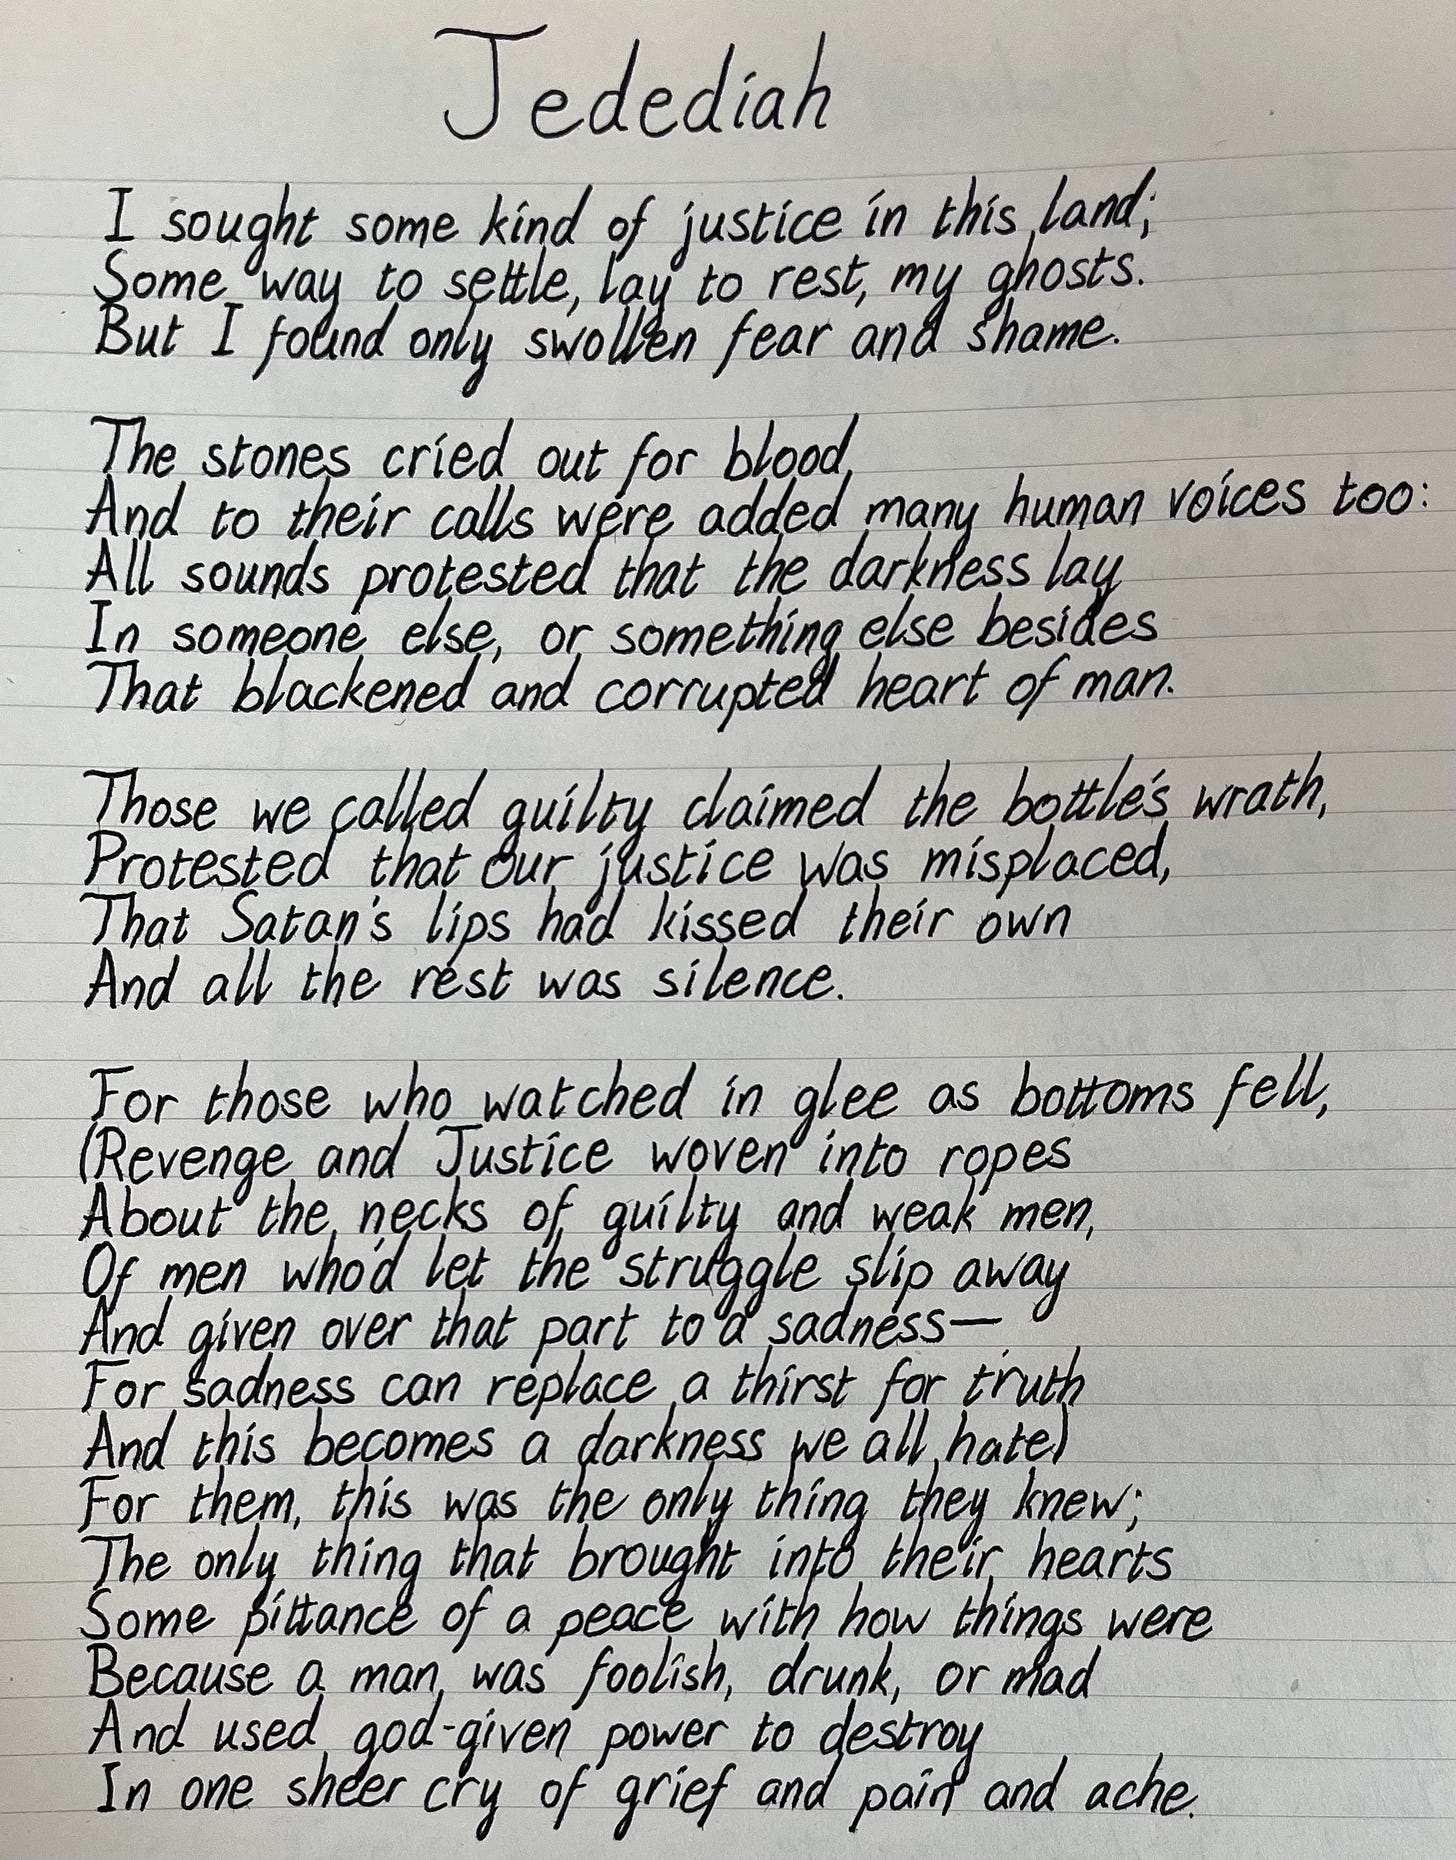 Jedediah
I sought some kind of justice in this land;
Some way to settle, lay to rest, my ghosts.
But I found only swollen fear and shame.
The stones cried out for blood,
And to their calls were added many human voices too:
All sounds protested that the darkness lay
In someone else, or something else besides
That blackened and corrupted heart of man.
Those we called guilty claimed the bottle's wrath,
Protested that our justice was misplaced,
That Satan's lips had kissed their own
And all the rest was silence.
For those who watched in glee as bottoms fell,
(Revenge and Justice woven into ropes
About the necks of guilty and weak men,
Of men who'd let the struggle slip away
And given over that part to a sadness—
For sadness can replace a thirst for truth
And this becomes a darkness we all hate)
For them, this was the only thing they knew;
The only thing that brought into their hearts
Some pittance of a peace with how things were
Because a man was foolish, drunk, or mad
And used god-given power to destroy
In one sheer cry of grief and pain and ache.